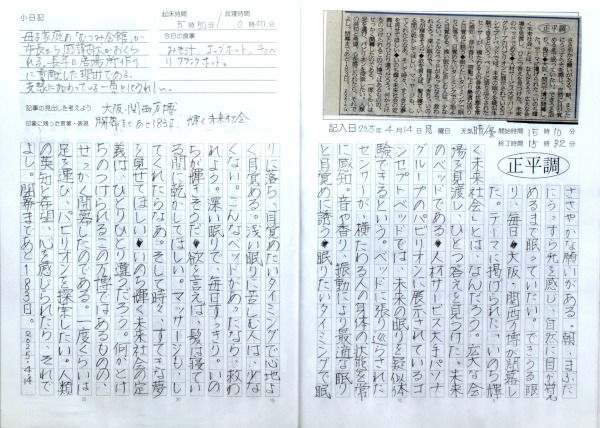 小日記
起床時間
5時50分
就寝時間
0時40分
母子家庭の「むつみ会館」が
市長から感謝状をおくら
れる。長年の居場所作り
に貢献した理由である。
支援に加わっている一員としてうれしい。
今日の食事
みそ汁、エッグホット、チョコパ
リ フランクホット。
記事の見出しを考えよう 大阪・関西万博
印象に残った言葉・表現 閉幕まであと183日、輝く未来社会
正平調
記入日2025年4月14日月曜日 天気晴 開始時間15時10分
終了時間15時32分
正平調
ささやかな願いがある。朝、まぶた
にうっすら光を感じ、自然に目が覚
めるまで眠っていたい。できうる限
り、毎日◆大阪・関西万博が開幕し
た。テーマに掲げられた「いのち輝
く未来社会」とは、なんだろう。広大な会
場を見渡し、ひとつ答えを見つけた。未来
のベッドである◆人材サービス大手パソナ
グループのパビリオンに展示されているコ
ンセプトベッドでは、未来の眠りを疑似体
験できるという。ベッドに張り巡らされた
センサーが、横たわる人の身体の状態を常
に感知。音や香り、振動により最適な眠り
と目覚めに誘う◆眠りたいタイミングで眠
りに落ち、目覚めたいタイミングで心地よ
く目覚める。浅い眠りに苦しむ人は、少な
くない。こんなベッドがあったなら、救わ
れよう。深い眠りで、毎日すっきり。いの
ちが輝きそうだ◆欲を言えば、髪は寝てい
る間に乾かしてほしい。マッサージも、し
てくれたらなあ。そして時々、すてきな夢
を見せてほしい◆いのち輝く未来社会の定
義は、ひとりひとり違うだろう。何かとけ
ちのつけられるこの万博ではあるものの、
せっかく開幕したのである。一度くらいは
足を運び、パビリオンを探索したい。人類
の英知と希望、心を感じられたら、それで
よし。閉幕まであと183日。2025・4・14